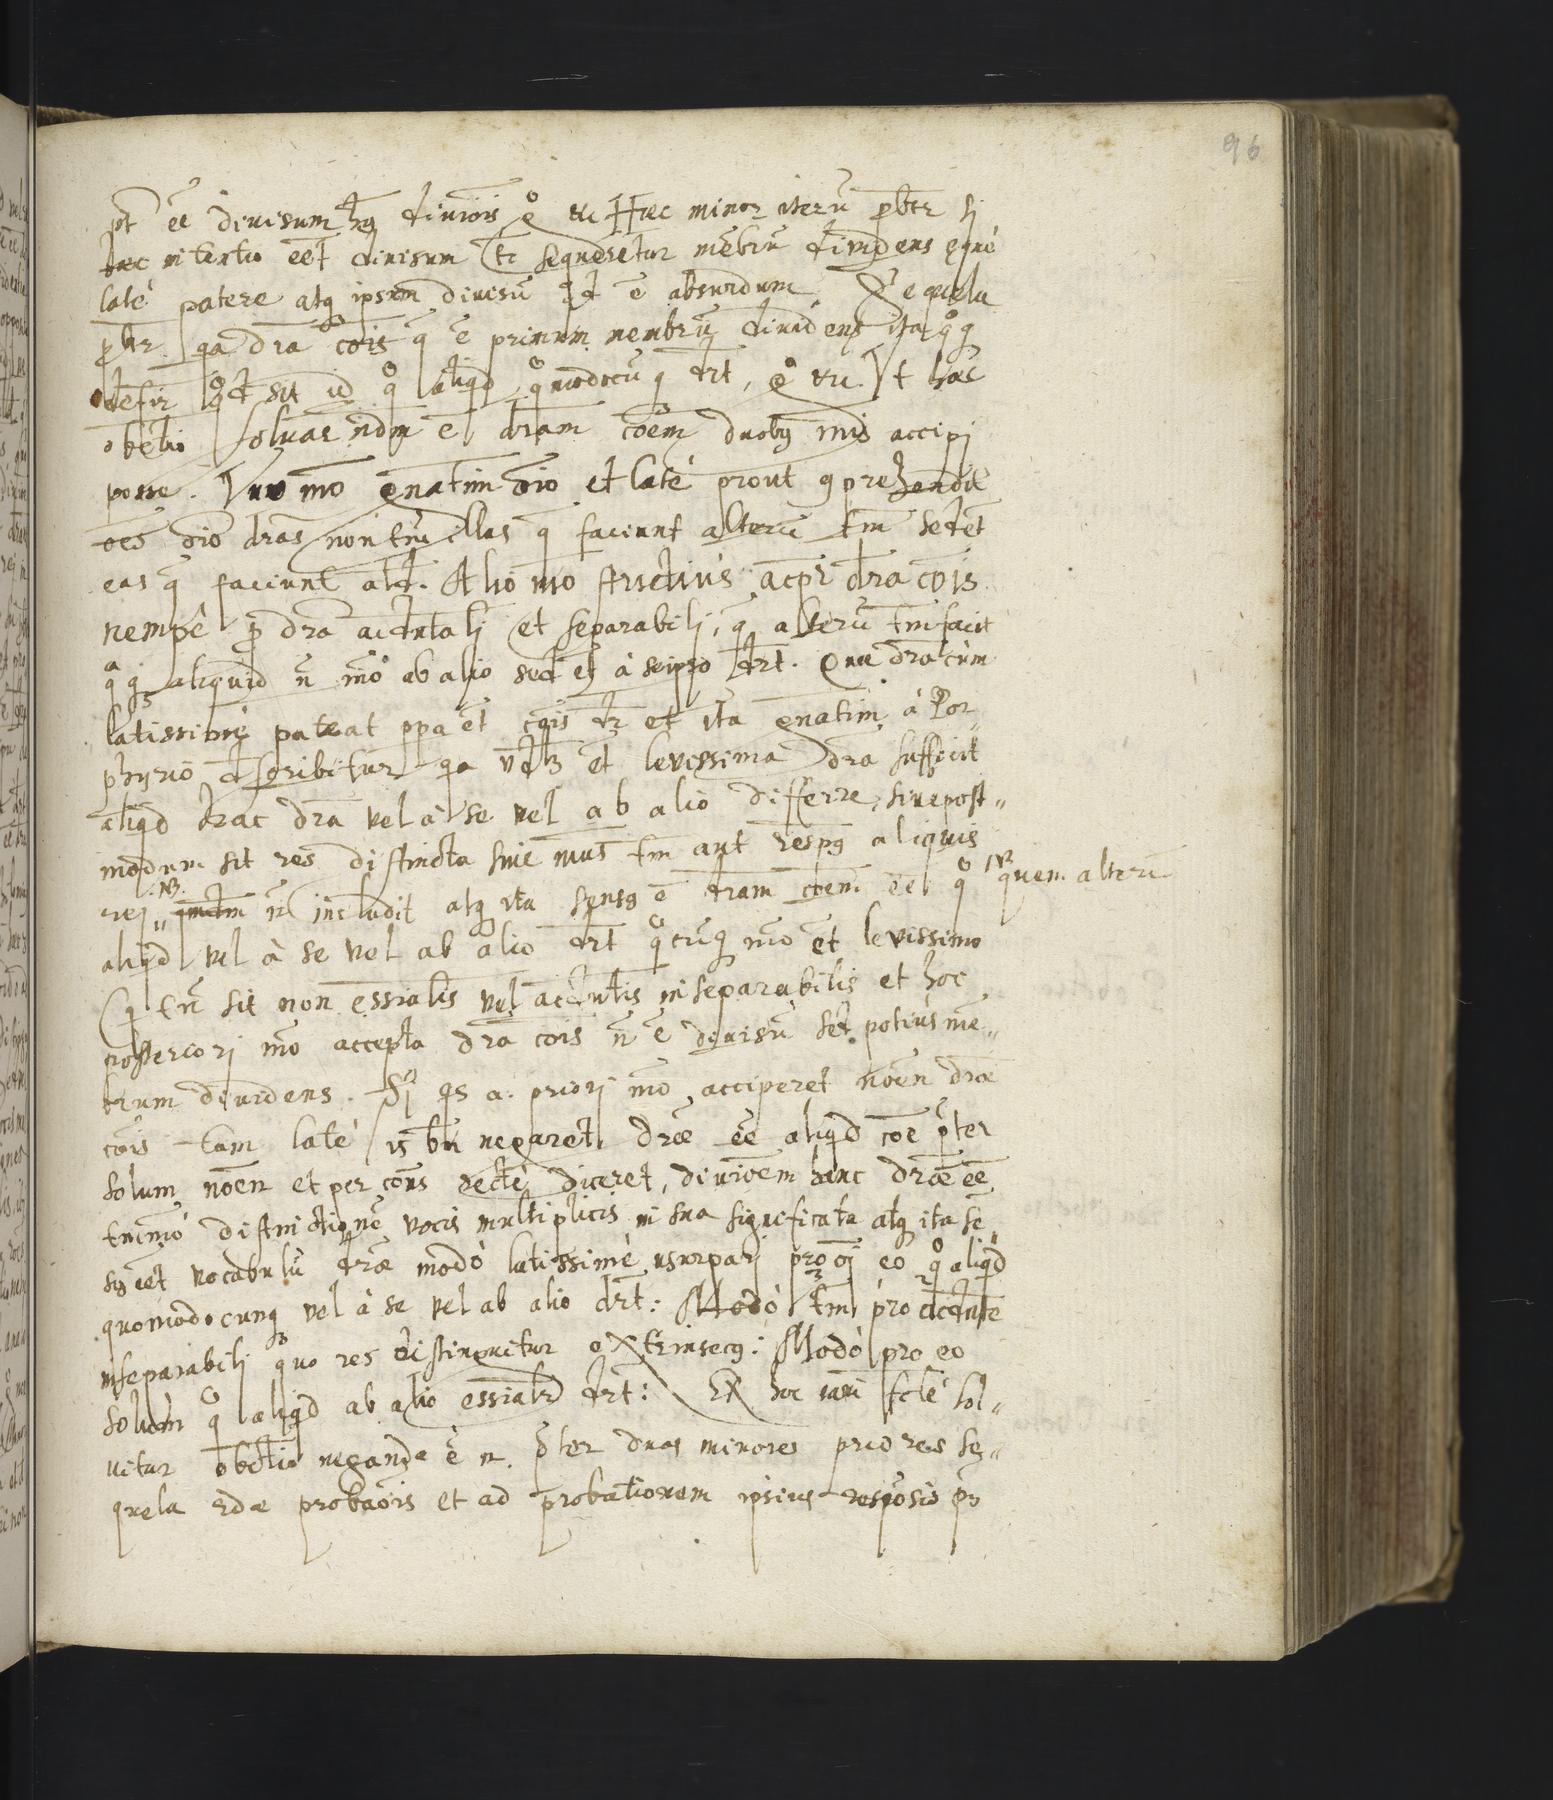 96
pt ēe divisum hꝫ divīois g° etc Hæc minor iterū pbtr si
hæc intentio eēt divisum tc sequeretur mēbrū dividens æquè
latè patere atq ipsum divisū qd ē absurdum. Sequela
pbtr. qa dra cōis q̄ ē primum membrū dividens ita
defir qd sit id qo aliqd quodocūq drt, g° etc. Ut hæc
obēctio solvat ndm ē dram cōem duobꝫ mis accipi
posse. Uno mō gnatim oīo et latè prout cprehendit
oēs oīo dras non tm illas q̄ faciunt alterū tm sed et
eas q̄ faciunt ald. Alio mō strictius acpr dra cōis
nempè p dra accdntali et separabili, q̄ alterū tm facit
aliquid n̄ mō ab alio sed et à seipso drt. Quæ dra cùm
latissimè pateat ppa et cōis dr et ita gnatim à Por„
phyrio dscribitur qa vdlꝫ et levissima dra sufficit
aliqd hac dra vel à se vel ab alio differre, sive post„
modum sit res distincta sive mus tm aut respꝫ aliquis
rej „ NB. n̄ includit atq ita sensꝫ ē dram cōem ēe qo NB quem alterū
aliqd vel à se vel ab alio drt qocūq mō et levissimo
q̄ tn̄ sit non essialis vel accdntlis inseparabilis et hoc
posteriorj mō accepta dra cōis n̄ ē divisū sed potius mē„
brum dividens. Si qs a. priorj mō acciperet nōen dræ
cōis tam latè is bn negaret dræ ēe aliqd cōe præter
solum nōen et per cōns rectè diceret, divīoem hanc dræ ēe
tmmō distinctionē vocis multiplicis in sua significata atq ita sē„
sꝫ eēt vocabulū dræ modò latissimè usurparj pro oj eo qo aliqd
quomodocunq vel à se vel ab alio drt: Modò tm pro accdnte
inseparabilj quo res distinguitur extrinsecꝫ: Modò pro eo
solùm qo aliqd ab alio essialr drt: Ex hoc iam fclè sol„
vitur obēctio neganda ē n. præter duas minores priores se„
quela 2dæ probaōis et ad probationem ipsius respōsio